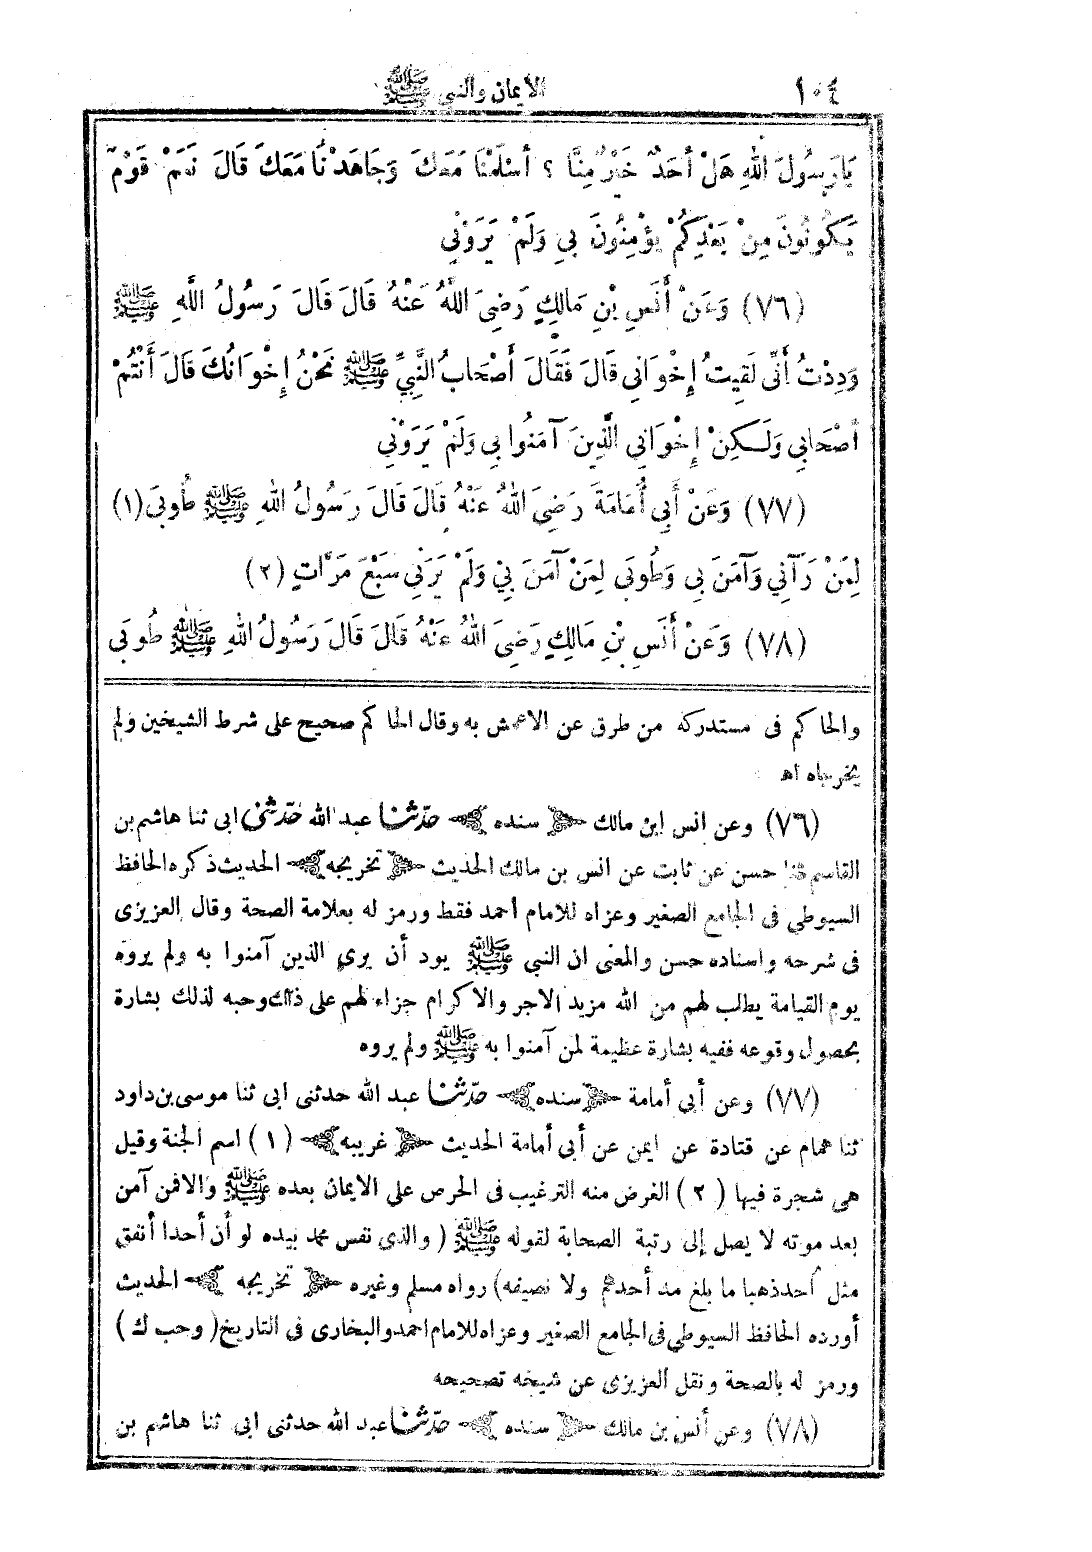 ١٠٤ الإيمان والنبي ﷺ
يَارَسُولَ اللهِ هَلْ أَحَدٌ خَيْرٌ مِنَّا ؟ أَسْلَمْنَا مَعَكَ وَجَاهَدْنَا مَعَكَ قَالَ نَعَمْ قَوْمٌ
يَكُونُونَ مِنْ بَعْدِكُمْ يُؤْمِنُونَ بِي وَلَمْ يَرَوْنِي
(٧٦) وَعَنْ أَنَسِ بْنِ مَالِكٍ رَضِيَ اللَّهُ عَنْهُ قَالَ قَالَ رَسُولُ اللَّهِ ﷺ
وَدِدْتُ أَنِّي لَقِيتُ إِخْوَانِي قَالَ فَقَالَ أَصْحَابُ النَّبِيِّ ﷺ نَحْنُ إِخْوَانُكَ قَالَ أَنْتُمْ
أَصْحَابِي وَلَـكِنْ إِخْوَانِي الَّذِينَ آمَنُوا بِي وَلَمْ يَرَوْنِي
(٧٧) وَعَنْ أَبِي أُمَامَةَ رَضِيَ اللهُ عَنْهُ قَالَ قَالَ رَسُولُ اللهِ ﷺ طُوبَى (١)
لِمَنْ رَآنِي وَآمَنَ بِي وَطُوبَى لِمَنْ آمَنَ بِي وَلَمْ يَرَنِي سَبْعَ مَرَّاتٍ (٢)
(٧٨) وَعَنْ أَنَسِ بْنِ مَالِكٍ رَضِيَ اللهُ عَنْهُ قَالَ قَالَ رَسُولُ اللهِ ﷺ طُوبَى
والحاكم فى مستدركه من طرق عن الاعمش به وقال الحاكم صحيح على شرط الشيخين ولم
يخرجاه اهـ
(٧٦) وعن انس ابن مالك ﴿ سنده ﴾ حدّثنا عبد الله حدّثنى ابى ثنا هاشم بن
القاسم ثنا حسن عن ثابت عن انس بن مالك الحديث ﴿ تخريجه ﴾ الحديث ذكره الحافظ
السيوطي فى الجامع الصغير وعزاه للامام أحمد فقط ورمز له بعلامة الصحة وقال العزيزى
فى شرحه واسناده حسن والمعنى ان النبي ﷺ يود أن يرى الذين آمنوا به ولم يروه
يوم القيامة يطلب لهم من الله مزيد الاجر والاكرام جزاء لهم على ذلك وحبه لذلك بشارة
بحصول وقوعه ففيه بشارة عظيمة لمن آمنوا به ﷺ ولم يروه
(٧٧) وعن أبي أمامة ﴿ سنده ﴾ حدّثنا عبد الله حدثنى ابى ثنا موسى بن داود
ثنا همام عن قتادة عن ايمن عن أبى أمامة الحديث ﴿ غريبه ﴾ (١) اسم الجنة وقيل
هى شجرة فيها (٢) الغرض منه الترغيب فى الحرص على الايمان بعده ﷺ والافمن آمن
بعد موته لا يصل إلى رتبة الصحابة لقوله ﷺ (والذى نفس محمد بيده لو أن أحدا أنفق
مثل أحدذهبا ما بلغ مد أحدهم ولا نصيفه) رواه مسلم وغيره ﴿ تخريجه ﴾ الحديث
أورده الحافظ السيوطي فى الجامع الصغير وعزاه للامام احمد والبخارى فى التاريخ (وحب ك)
ورمز له بالصحة ونقل العزيزى عن شيخه تصحيحه
(٧٨) وعن أنس بن مالك ﴿ سنده ﴾ حدّثنا عبد الله حدثنى ابى ثنا هاشم بن